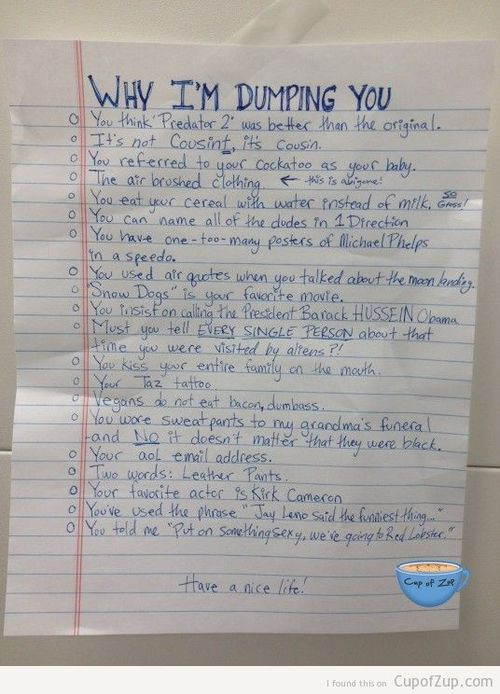 WHY I'M DUMPING YOU
You think 'Predator 2' was better than the original.
It's not Cousint, it's Cousin.
You referred to your Cockatoo as your baby.
The air brushed clothing ← this is a bigone!
You eat your cereal with water instead of milk. SO Gross!
You can name all of the dudes in 1 Direction
You have one-too-many posters of Michael Phelps
in a speedo.
You used air quotes when you talked about the moon landing.
"Snow Dogs" is your favorite movie.
You insist on calling the President Barack HUSSEIN Obama
Must you tell EVERY SINGLE PERSON about that
time you were visited by aliens?!
You kiss your entire family on the mouth.
Your Taz tattoo.
Vegans do not eat bacon, dumbass.
You wore sweatpants to my grandma's funeral
-and NO it doesn't matter that they were black.
Your aol email address.
Two words: Leather Pants.
Your favorite actor is Kirk Cameron
You've used the phrase "Jay Leno said the funniest thing..."
You told me "Put on something sexy, we're going to Red Lobster."
Have a nice life!
Cup of Zup
I found this on CupofZup.com